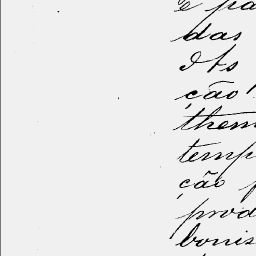 e pa
das
ção
them
temp
ção p
prod
bonis